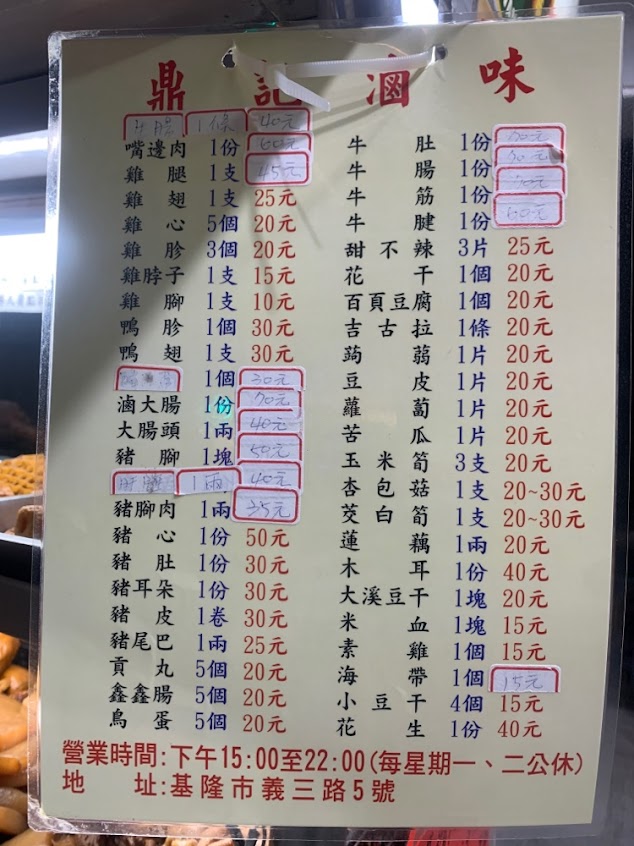 鼎記滷味
1條 40元
嘴邊肉 1份 60元
雞腿 1支 45元
雞翅 1支 25元
雞心 5個 20元
雞胗 3個 20元
雞脖子 1支 15元
雞腳 1支 10元
鴨胗 1個 30元
鴨翅 1支 30元
1個 30元
滷大腸 1份 70元
大腸頭 1兩 40元
豬腳 1塊 50元
1兩 40元
豬腳肉 1兩 35元
豬心 1份 50元
豬肚 1份 30元
豬耳朵 1份 30元
豬皮 1卷 30元
豬尾巴 1兩 25元
貢丸 5個 20元
鑫鑫腸 5個 20元
鳥蛋 5個 20元
牛肚 1份
牛腸 1份
牛筋 1份
牛腱 1份
甜不辣 3片 25元
花干 1個 20元
百頁豆腐 1個 20元
吉古拉 1條 20元
蒟蒻 1片 20元
豆皮 1片 20元
蘿蔔 1片 20元
苦瓜 1片 20元
玉米筍 3支 20元
杏包菇 1支 20~30元
茭白筍 1支 20~30元
蓮藕 1兩 20元
木耳 1份 40元
大溪豆干 1塊 20元
米血 1塊 15元
素雞 1個 15元
海帶 1個 15元
小豆干 4個 15元
花生 1份 40元
營業時間:下午15:00至22:00(每星期一、二公休)
地址:基隆市義三路5號